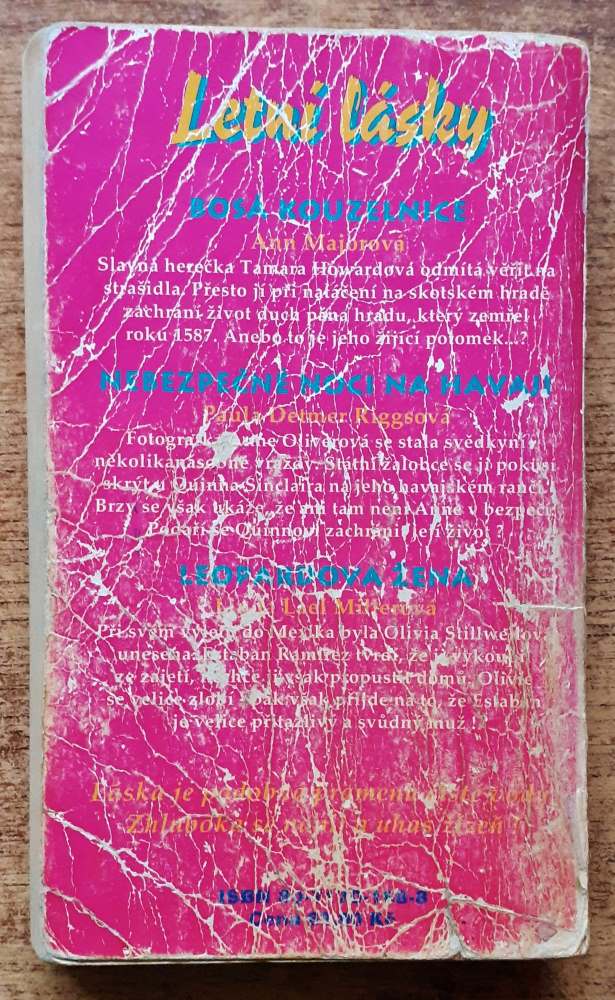 Letní lásky
BOSÁ KOUZELNICE
Ann Majorová
Slavná herečka Tamara Howardová odmítá věřit na
strašidla. Přesto jí při natáčení na skotském hradě
zachrání život duch pána hradu, který zemřel
roku 1587. Anebo to je jeho žijící potomek...?
NEBEZPEČNÉ NOCI NA HAVAJI
Paula Detmer Riggsová
Fotografka Anne Oliverová se stala svědkyní
několikanásobné vraždy. Státní žalobce se ji pokusí
skrýt u Quinna Sinclaira na jeho havajském ranči.
Brzy se však ukáže, že ani tam není Anne v bezpečí.
Podaří se Quinnovi zachránit její život ?
LEOPARDOVA ŽENA
Lael Millerová
Při svém výletu do Mexika byla Olivia Stillwellová
unesena. Esteban Ramirez tvrdí, že ji vykoupil
ze zajetí, nechce ji však propustit domů. Olivie
se velice zlobí, pak však přijde na to, že Esteban
je velice přitažlivý a svůdný muž !
Láska je podobná prameni čisté vody.
Zhluboka se napij a uhas žízeň !
ISBN
Cena Kč